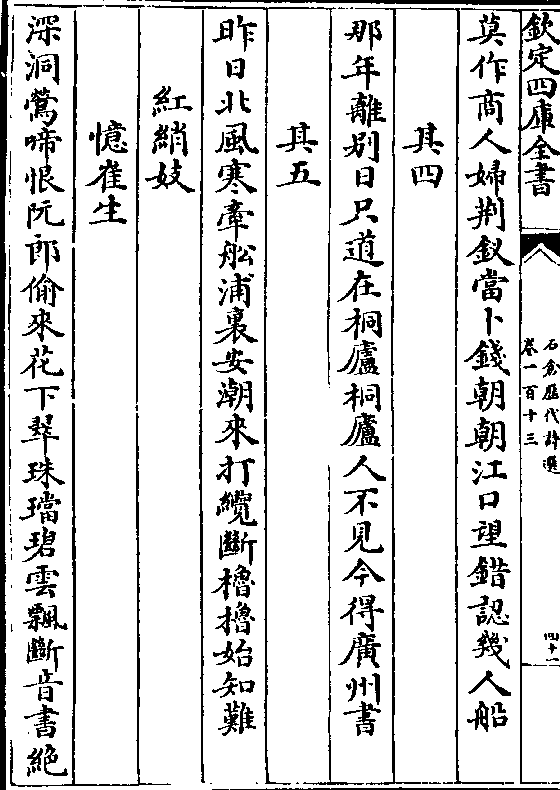 欽定四庫全書
石倉歷代詩選
卷一百十三
四十一
莫作商人婦荆釵當卜錢朝朝江口望錯認幾人船
其四
那年離别日只道在桐廬桐廬人不見今得廣州書
其五
昨日北風寒牽船浦裏安潮來打纜斷櫓擼始知難
紅綃妓
憶崔生
深洞鶯啼恨阮郎偷來花下翠珠璫碧雲飄斷音書絶